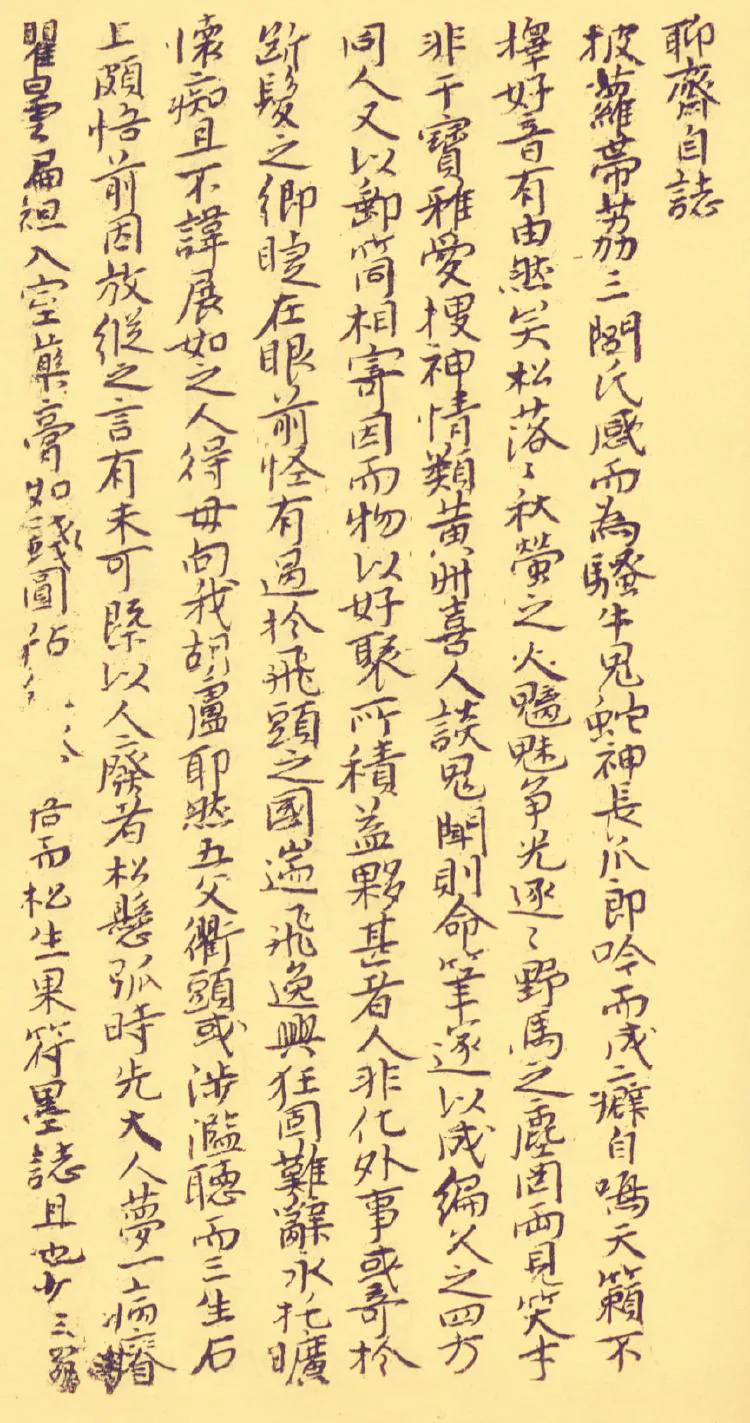 聊齋自誌
披蘿帶荔三閭氏感而為騷牛鬼蛇神長爪郎吟而成癖自鳴天籟不
擇好音有由然矣松落〻秋螢之火魑魅爭光逐〻野馬之塵罔兩見笑才
非干寶雅愛搜神情類黃州喜人談鬼聞則命筆遂以成編久之四方
同人又以郵筒相寄因而物以好聚所積益夥甚者人非化外事或奇於
斷髮之鄉睫在眼前怪有過於飛頭之國遄飛逸興狂固難辭永托曠
懷癡且不諱展如之人得毋向我胡盧耶然五父衢頭或涉濫聽而三生石
上頗悟前因放縱之言有未可概以人廢者松懸弧時先大人夢一病瘠
瞿曇扁袒入室藥膏如錢圓粘 寤而松生果符墨誌且也少